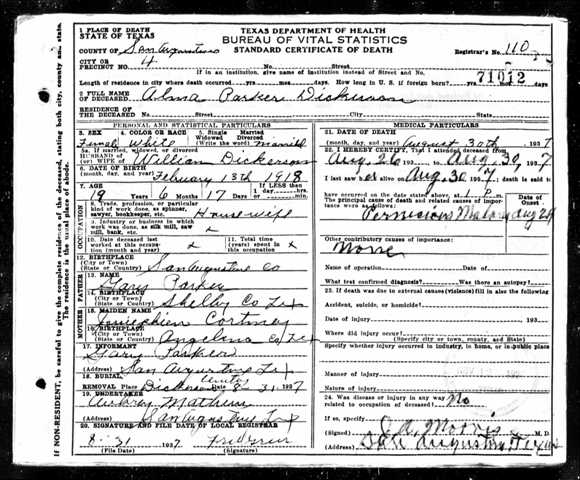 1 PLACE OF DEATH
STATE OF TEXAS
TEXAS DEPARTMENT OF HEALTH
BUREAU OF VITAL STATISTICS
STANDARD CERTIFICATE OF DEATH
COUNTY OF San Augustine
Registrar's No. 110
CITY OR PRECINCT NO. 4
No. Street
If in an institution, give name of institution instead of Street and No.
71012
Length of residence where death occurred yrs. mos. days. How long in U. S. if foreign born? yrs. mos. days
2 FULL NAME OF DECEASED Alma Parker Dickerson
RESIDENCE OF THE DECEASED No. Street City State
PERSONAL AND STATISTICAL PARTICULARS
3. SEX Female
4. COLOR OR RACE White
5. Single Married Widowed Divorced (Write the word) Married
5a. If married, widowed, or divorced HUSBAND OF (or) WIFE OF William Dickerson
6. DATE OF BIRTH (month, day, and year) February 13th 1918
7. AGE 19 Years 6 Months 17 Days If LESS than 1 day
OCCUPATION
8. Trade, profession, or particular kind of work done, as spinner, sawyer, bookkeeper, etc. Housewife
9. Industry or business in which work was done, as silk mill, saw mill, bank, etc. x
10. Date deceased last worked at this occupation (month and year) x
11. Total time (years) spent in this occupation x
12. BIRTHPLACE (City or Town) (State or Country) San Augustine Co
FATHER
13. NAME Gary Parker
14. BIRTHPLACE (City or Town) (State or Country) Shelby Co Tex
MOTHER
15. MAIDEN NAME Josephien
16. BIRTHPLACE (City or Town) (State or Country) Angelina Co Tex
17. INFORMANT Gary Parker
(Address) San Augustine Tx
18. BURIAL, REMOVAL Place Dickerson Date 8-31 1937
19. UNDERTAKER
(Address) San Augustine Tx
20. SIGNATURE AND FILE DATE OF LOCAL REGISTRAR
8-31 1937
(File Date) (Signature)
MEDICAL PARTICULARS
21. DATE OF DEATH (month, day, and year) August 30th 1937
22. I HEREBY CERTIFY, That I attended deceased from Aug 26 193 to Aug. 30 1937
I last saw her alive on Aug. 30 1937, death is said to have occurred on the date stated above at 1 P. m.
The principal cause of death and related causes of importance were as follows: Date of Onset
Pernicious Malaria Aug 26
Other contributory causes of importance:
None
Name of operation Date of
What test confirmed diagnosis? Was there an autopsy?
23. If death was due to external causes (violence) fill in also the following
Accident, suicide, or homicide?
Date of injury 193
Where did injury occur?
(Specify city or town, county, and State)
Specify whether injury occurred in industry, in home, or in public place
Manner of injury
Nature of injury
24. Was disease or injury in any way related to occupation of deceased? No
If so, specify
(Signed) M. D.
(Address) San Augustine, Texas
IF NON-RESIDENT, be careful to give the complete residence of the deceased, stating both city, county and state.
The residence is the usual place of abode.